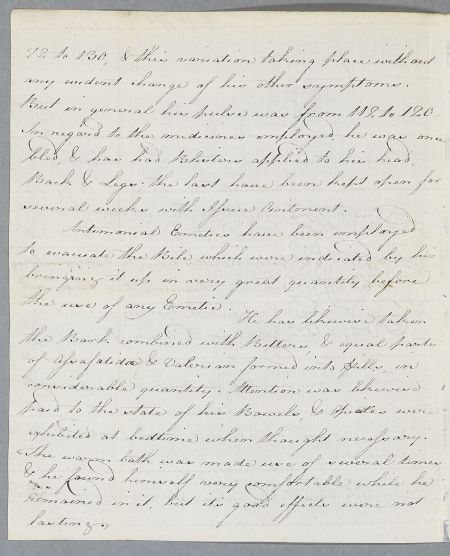 72 to 130, & this variation taking place without
any evident change of his other symptoms.
But in general his pulse was from 112 to 120.
In regard to the medicines employed, he was once
bled, & has had Blisters applied to his head,
Back & Legs: the last have been kept open for
several weeks with Issue Ointment.
Antimonial Emetics have been employed
to evacuate the Bile which were indicated by his
bringing it up in very great quantity before
the use of any Emetic.
He has likewise taken
the Bark combined with Bitters, & equal parts
of Assafatidæ & Valerian formed into Pills, in
considerable quantity. Attention was likewise
paid to the state of his Bowels, & Opiates were
exhibited at bedtime when thought necessary.
The warm bath was made use of several times
& he found himself very comfortable while he
remained in it, but it's good effects were not
lasting.